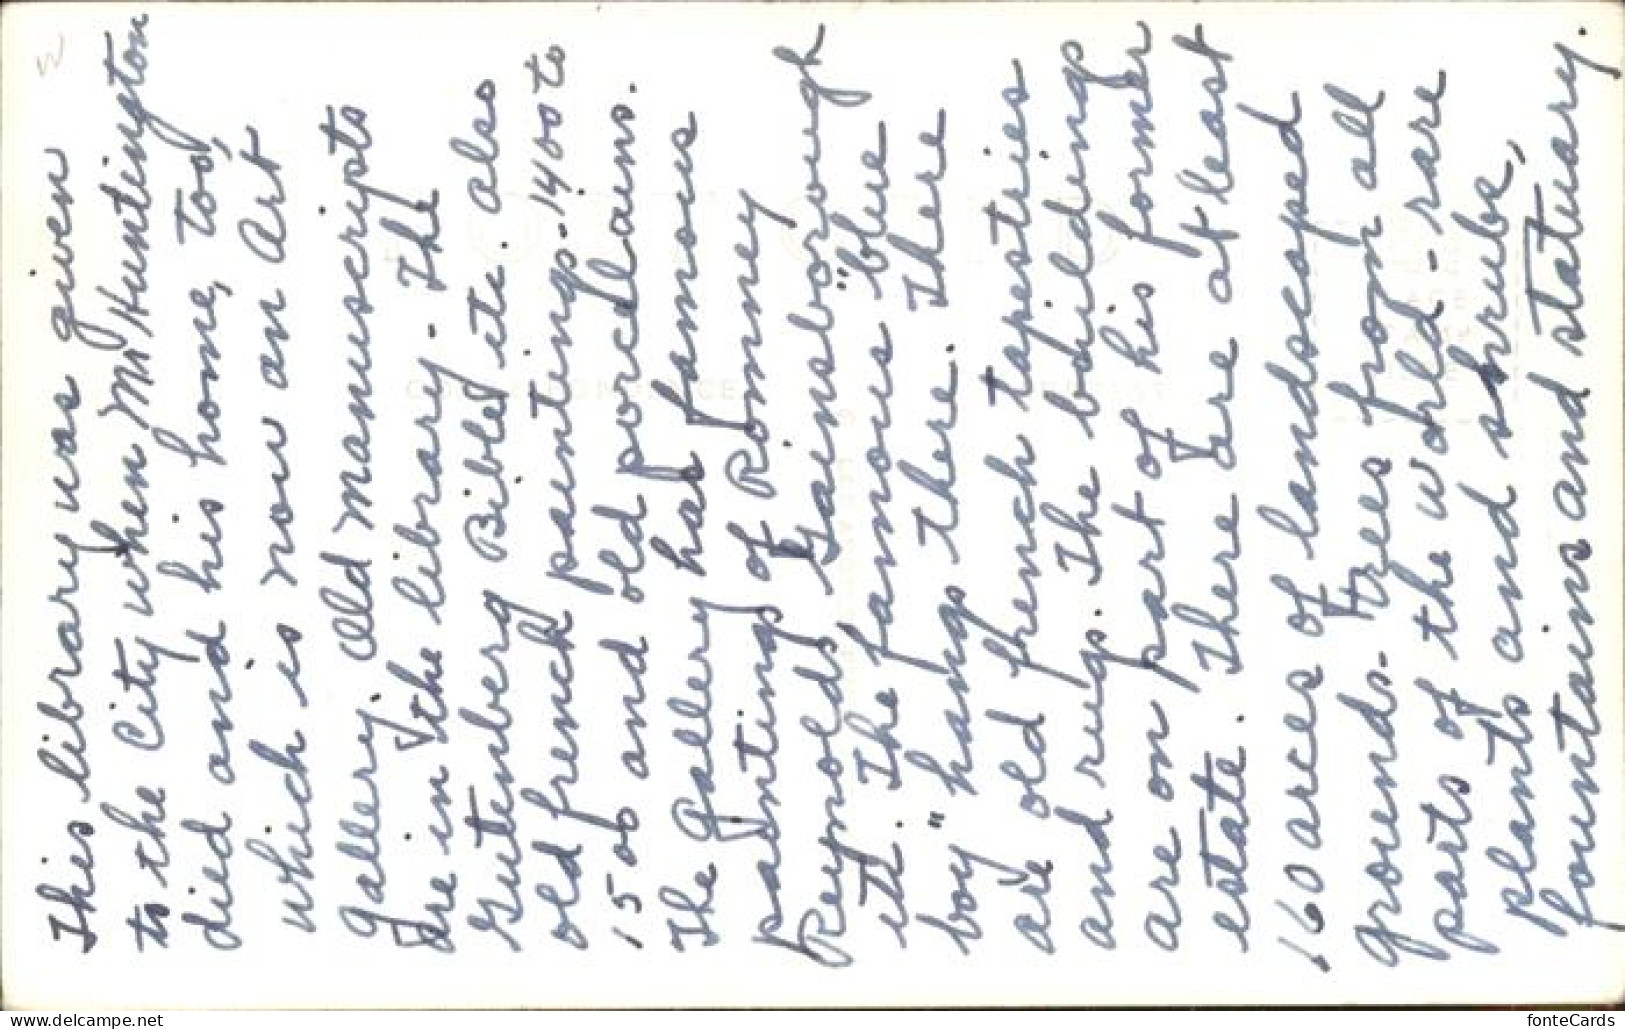 This library was given
to the City when Mr Huntington
died and his home, too,
which is now an Art
Gallery. Old Manuscripts
are in the library - The
Gutenberg Bible etc. also
old french paintings - 1400 to
1500 and old porcelains.
The Gallery has famous
paintings of Romney
Reynolds, Gainsborough
etc. The famous "blue
boy" hangs there. There
are old french tapestries
and rugs. The buildings
are on part of his former
estate. There are at least
160 arces of landscaped
grounds - trees from all
parts of the world - rare
plants and shrubs,
fountains and statuary.
CORRESPONDENCE
www.delcampe.net
fonteCards